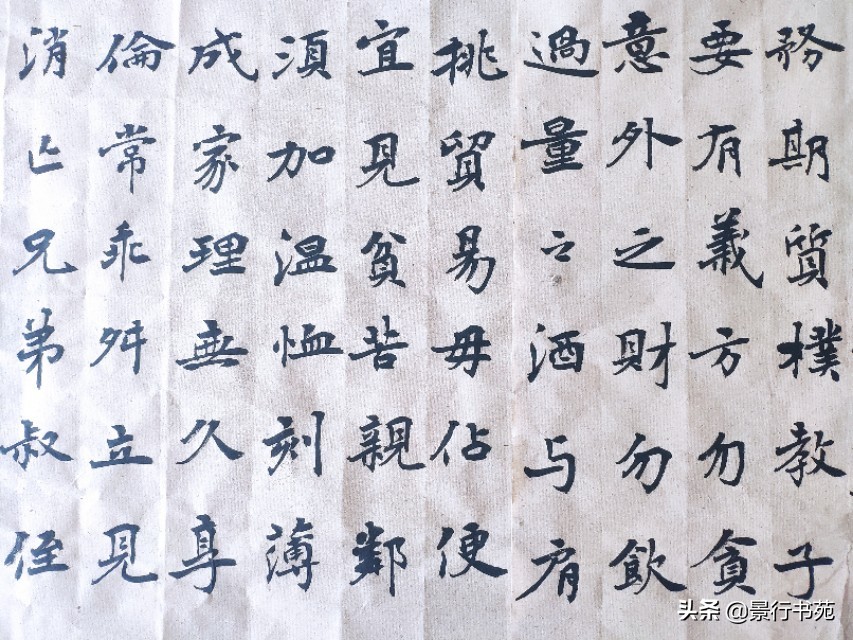 務期質樸教子
要有義方勿貪
意外之財勿飲
過量之酒与肩
挑貿易毋佔便
宜見貧苦親鄰
須加温恤刻薄
成家理無久享
倫常乖舛立見
消亡兄弟叔侄
头条 @景行书苑